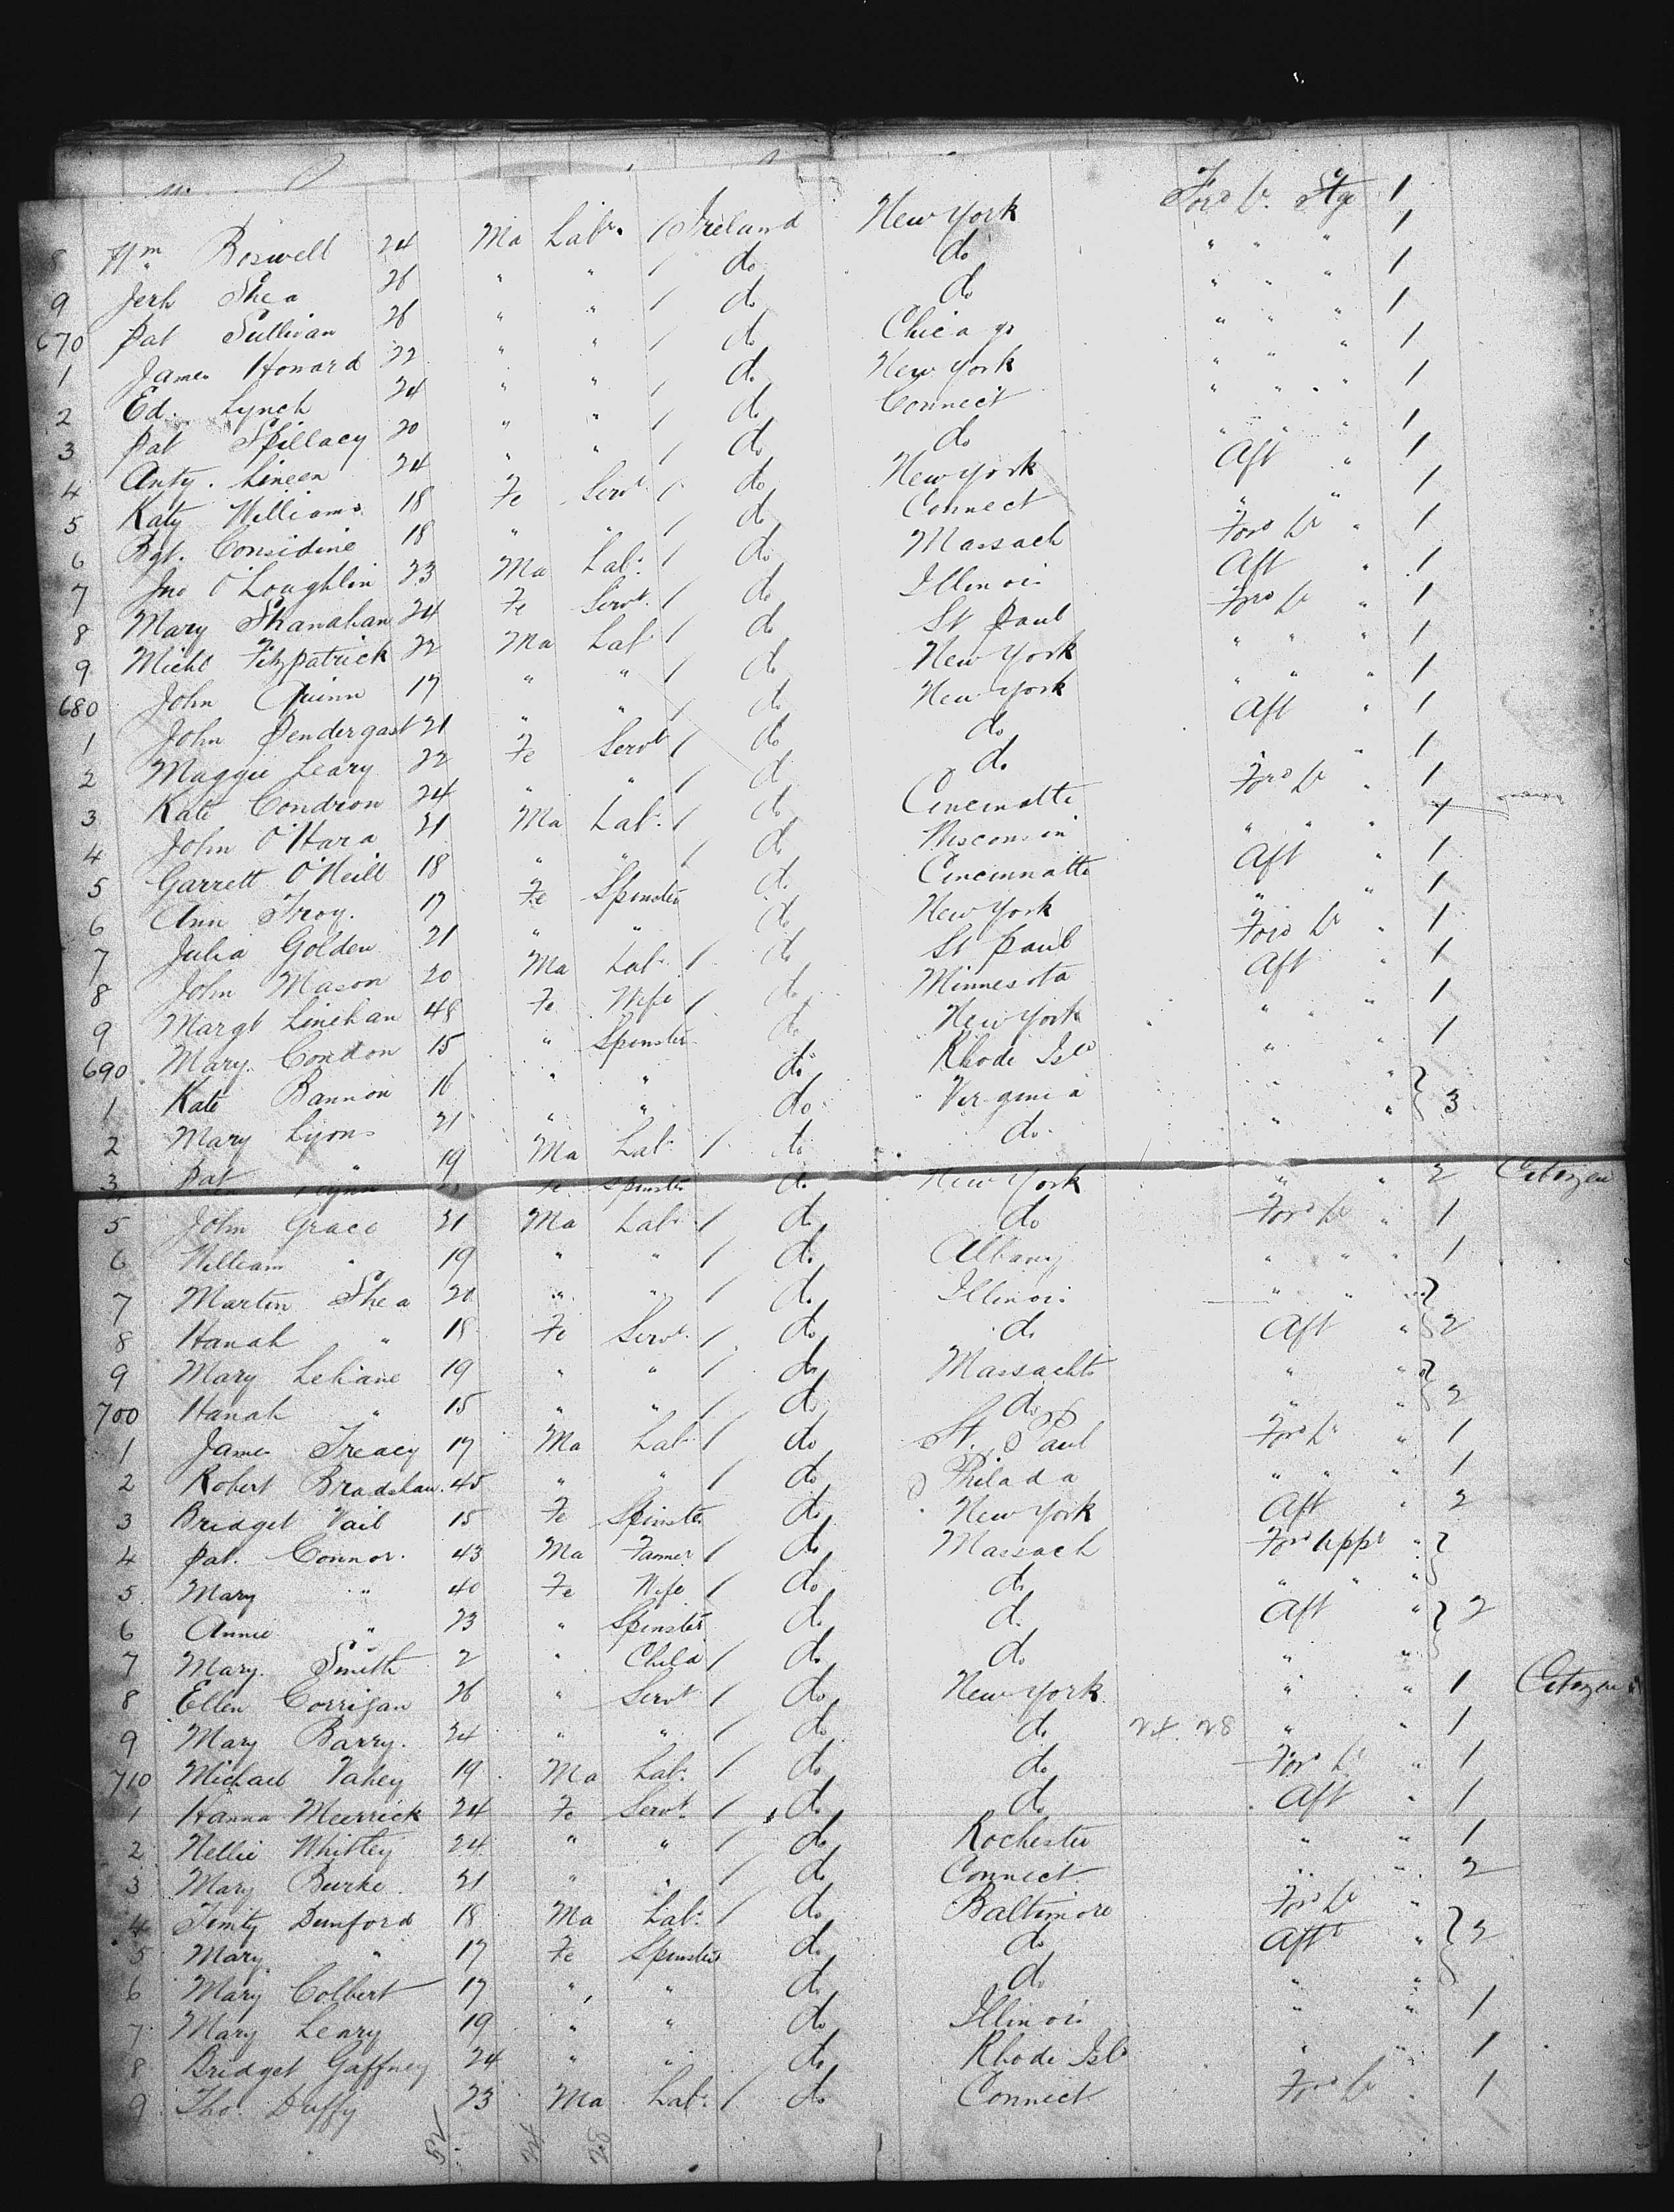 8 Wm Boswell 24 Ma Labr. 1 Ireland New York Ford lr. Stge 1
9 Jerh Shea 26 " " 1 do do " " " 1
670 Pat Sullivan 26 " " 1 do do " " " 1
1 James Howard 22 " " 1 do Chicago " " " 1
2 Ed. Lynch 24 " " 1 do New York " " " 1
3 Pat Spillacy 20 " " 1 do Connect " " " 1
4 Anty. Lineen 24 " " 1 do do " " " 1
5 Katy Williams 18 Fe Servt 1 do New York Aft " 1
6 Bgt. Considine 18 " " 1 do Connect " " 1
7 Jno O'Loughlin 23 Ma Labr 1 do Massach Ford lr " 1
8 Mary Shanahan 24 Fe Servt. 1 do Illinois Aft " 1
9 Michl Fitzpatrick 22 Ma Lab 1 do St Paul Ford lr " 1
680 John Quinn 17 " " 1 do New York " " " 1
1 John Pendergast 21 " " 1 do New York " " " 1
2 Maggie Leary 22 Fe Servt 1 do do Aft " 1
3 Kate Condron 24 " " 1 do do " 1
4 John O'Hara 21 Ma Labr. 1 do Cincinatti Ford lr " 1
5 Garrett O'Neill 18 " " 1 do Wisconsin " " " 1
6 Ann Troy. 17 Fe Spinster do Cincinnatti Aft " 1
7 Julia Golden 21 " " do New York " " 1
8 John Mason 20 Ma Labr 1 do St Paul Ford lr " 1
9 Margt Linehan 48 Fe Wife 1 do Minnesota Aft " 1
690 Mary Condon 15 " Spinster do New York " " 1
1 Kate Bannon 16 " " do Rhode Isld " 1
2 Mary Lyons 21 " " do Virginia " "
3 Pat " 19 Ma Labr 1 do do " " 3
Fe Spinster do New York " " 2 Citizen
5 John Grace 21 Ma Labr 1 do do Ford lr " 1
6 William " 19 " " 1 do Albany " " " 1
7 Martin Shea 20 " " 1 do Illinois " " "
8 Hanah " 18 Fe Servt. 1 do do Aft " 2
9 Mary Lehane 19 " " 1 do Massachts " "
700 Hanah " 15 " " 1 do do " " 2
1 James Treacy 17 Ma Lab 1 do St. Paul Ford lr " 1
2 Robert Bradshaw 45 " " 1 do Philada " " " 1
3 Bridget Vail 15 Fe Spinster do New York Aft " 2
4 Pat. Connor. 43 Ma Farmer 1 do Massach Ford uppr "
5 Mary " 40 Fe Wife 1 do do " " "
6 Annie " 23 " Spinster do do Aft " 2
7 Mary Smith 2 " Child 1 do do " "
8 Ellen Corrigan 26 " Servt 1 do New York " " 1 Citizen
9 Mary Barry. 24 " " 1 do do 24. 28 " " 1
710 Michael Vahey 19 Ma Labr. 1 do do Ford lr " 1
1 Hanna Meerrick 24 Fe Servt. 1 do do Aft " 1
2 Nellie Whitley 24 " " 1 do Rochester " " 1
3 Mary Burke 21 " " 1 do Connect " " 2
4 Timty Dunford 18 Ma Labr. 1 do Baltimore Ford lr "
5 Mary " 17 Fe Spinster do do Aft " 2
6 Mary Colbert 17 " " do do " "
7 Mary Leary 19 " " do Illinois " " 1
8 Bridget Gaffney 24 " " do Rhode Isld " " 1
9 Tho. Duffy 23 Ma Labr. 1 do Connect Ford lr " 1